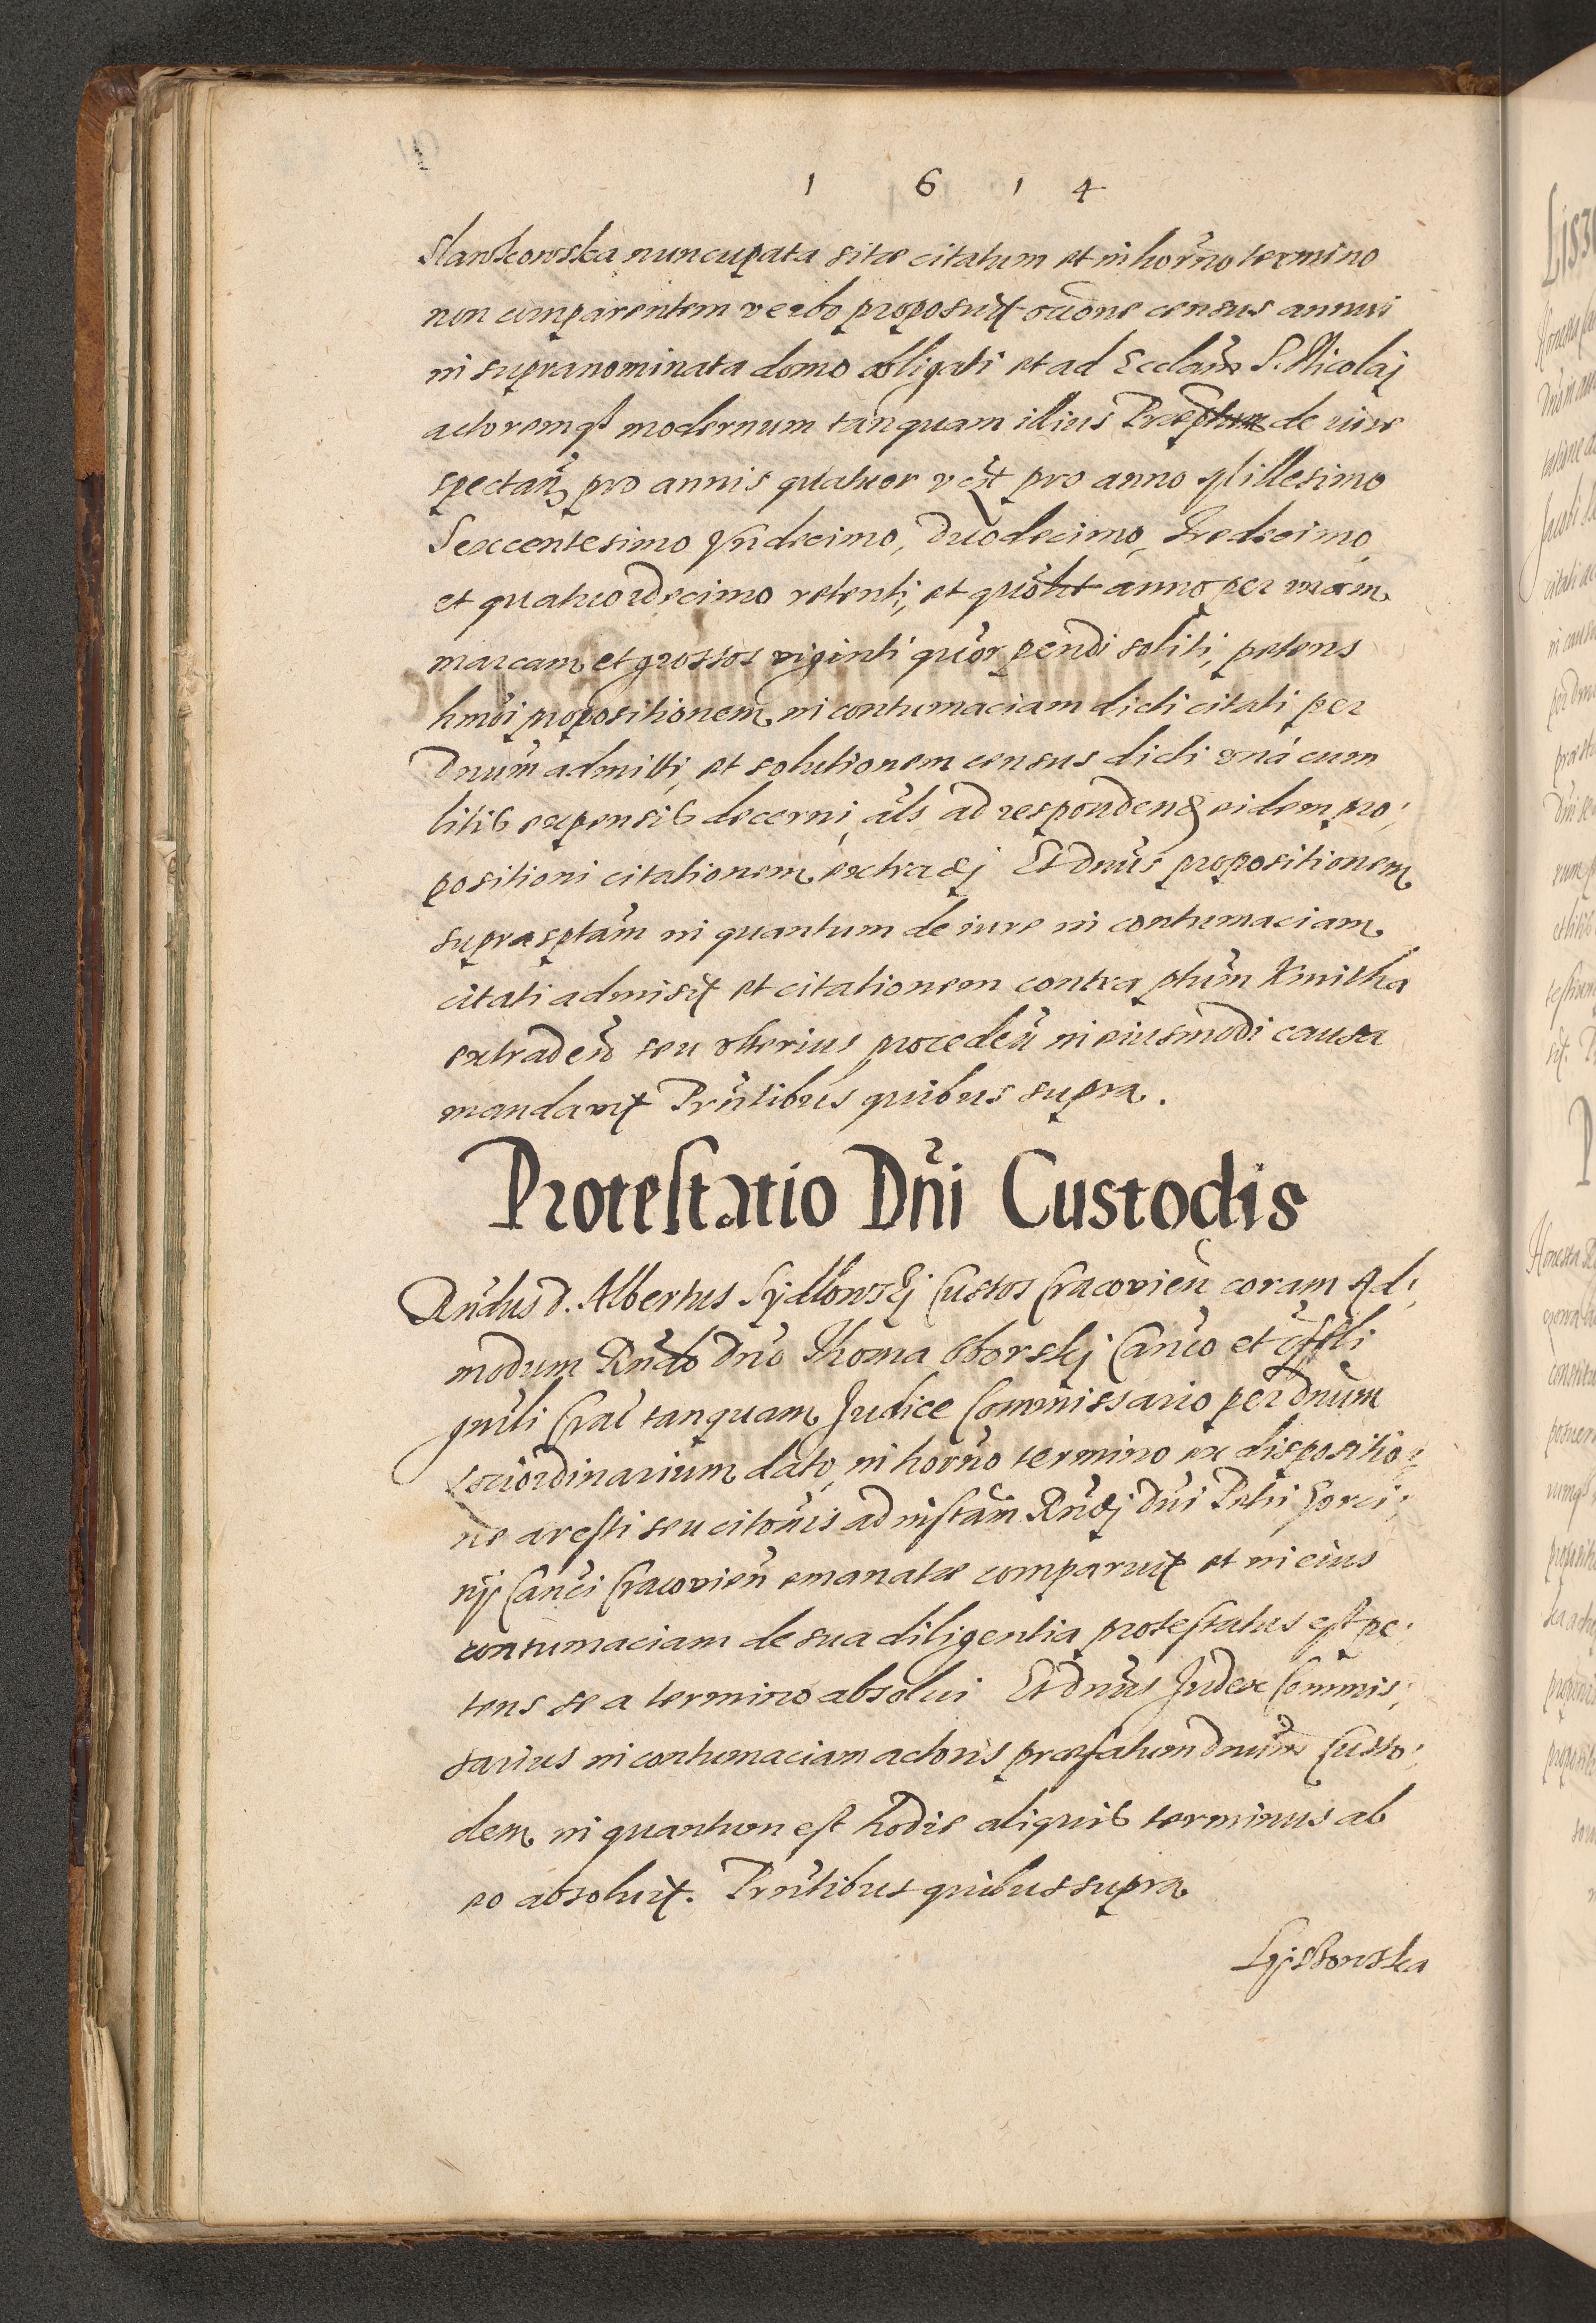 1 6 1 4
Slawkowska nuncupata sitae citatum et in horño termino
non comparentem verbo proposuit rãone census annui
in supranominata domo obligati et ad Ecclãm S. Nicolaj
actoremq3 modernum tanquam illius Praeptum de iure
spectañ pro annis quatuor vczt pro anno Millesimo
Sexcentesimo Vndecimo, Duodecimo, Tredecimo,
et quatuordecimo retenti, et quõlt anno per vnam
marcam et grossos viginti quõr pendi soliti, petens
hmõi propositionem in contumaciam dicti citati per
Dnum admitti, et solutionem census dicti vna cum
litib expensib decerni, als ad responden eidem pro:
positioni citationem extradj Et dnus propositionem
suprasptam in quantum de iure in contumaciam
citati admisit et citationem contra ptum Kmitha
extradeñ seu vlterius procedeñ in eiusmodi causa
mandavit Prñtibus quibus supra.
Protestatio Dñi Custodis
Rñdus d. Albertus Sydlowskj Custos Cracovieñ coram Ad:
modum Rñdo Dño Thoma Oborskj Canco et Offli
gnãli Craĉ tanquam Judice Commissario per dnum
Lociordinarium dato, in horño termino ex dispositio:
ne aresti seu citõnis ad instam Rñdj Dñi Petri Gorci:
nij Canci Cracovieñ emanatae comparuit et in eius
contumaciam de sua diligentia protestatus est pe:
tens se a termino absolui Et dnus Judex Commis:
sarius in contumaciam actoris praefatum dnum Custo:
dem in quantum est hodie aliquis terminus ab
eo absoluit. Prñtibus quibus supra